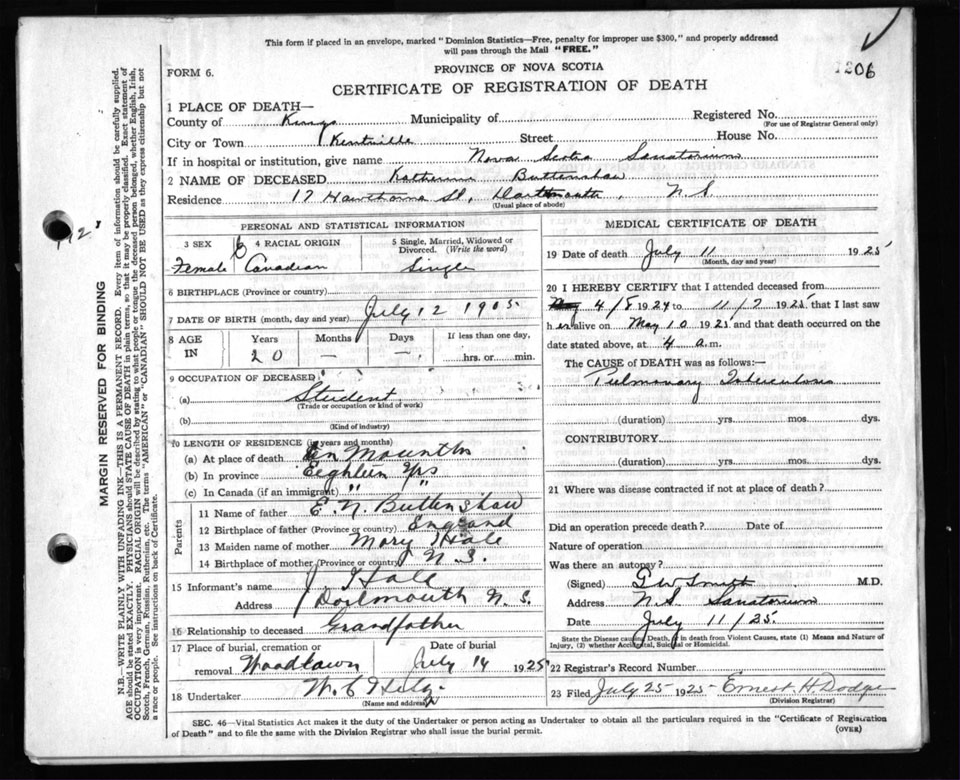 This form if placed in an envelope, marked "Dominion Statistics—Free, penalty for improper use $300," and properly addressed
will pass through the Mail "FREE."
1206
FORM 6.
PROVINCE OF NOVA SCOTIA
CERTIFICATE OF REGISTRATION OF DEATH
1 PLACE OF DEATH—
County of Kings Municipality of Registered No.
(For use of Registrar General only)
City or Town Kentville Street House No.
If in hospital or institution, give name Nova Scotia Sanatorium
2 NAME OF DECEASED Katherine Buttenshaw
Residence 17 Hawthorne St, Dartmouth, N S.
(Usual place of abode)
PERSONAL AND STATISTICAL INFORMATION
3 SEX 4 RACIAL ORIGIN 5 Single, Married, Widowed or Divorced. (Write the word)
Female Canadian Single
6 BIRTHPLACE (Province or country)
7 DATE OF BIRTH (month, day and year) July 12 1905
8 AGE IN Years Months Days If less than one day,
20 — — hrs. or min.
9 OCCUPATION OF DECEASED
(a) Student
(Trade or occupation or kind of work)
(b)
(Kind of industry)
10 LENGTH OF RESIDENCE (in years and months)
(a) At place of death
(b) In province Eighteen Yrs
(c) In Canada (if an immigrant) " "
Parents
11 Name of father E. N. Buttenshaw
12 Birthplace of father (Province or country) England
13 Maiden name of mother Mary Hale
14 Birthplace of mother (Province or country) N S.
15 Informant's name J Hale
Address Dartmouth N. S.
16 Relationship to deceased Grandfather
17 Place of burial, cremation or removal Woodlawn Date of burial July 14 1925
18 Undertaker
(Name and address)
MEDICAL CERTIFICATE OF DEATH
19 Date of death July 11 1925
(Month, day and year)
20 I HEREBY CERTIFY that I attended deceased from
4/8 1924 to 11/7 1925 that I last saw
h er alive on May 10 1925 and that death occurred on the
date stated above, at 4 a.m.
The CAUSE of DEATH was as follows:—
Pulmonary Tuberculosis
(duration) yrs. mos. dys.
CONTRIBUTORY
(duration) yrs. mos. dys.
21 Where was disease contracted if not at place of death?
Did an operation precede death? Date of
Nature of operation
Was there an autopsy?
(Signed) G W Smith M.D.
Address N.S. Sanatorium
Date July 11/25
State the Disease causing Death, if death from Violent Causes, state (1) Means and Nature of
Injury, (2) whether Accidental, Suicidal or Homicidal.
22 Registrar's Record Number
23 Filed July 25 1925 Ernest H. Dodge
(Division Registrar)
SEC. 46—Vital Statistics Act makes it the duty of the Undertaker or person acting as Undertaker to obtain all the particulars required in the "Certificate of Registration
of Death" and to file the same with the Division Registrar who shall issue the burial permit.
(OVER)
MARGIN RESERVED FOR BINDING
N.B.—WRITE PLAINLY WITH UNFADING INK—THIS IS A PERMANENT RECORD. Every item of information should be carefully supplied.
AGE should be stated EXACTLY. PHYSICIANS should STATE CAUSE OF DEATH in plain terms, so that it may be properly classified. Exact statement of
OCCUPATION is very important. RACIAL ORIGIN will be described by stating to what people or tongue the deceased person belonged, whether English, Irish,
Scotch, French, German, Russian, Ruthenian, etc. The terms "AMERICAN" or "CANADIAN" SHOULD NOT BE USED as they express citizenship but not
a race or people. See instructions on back of Certificate.